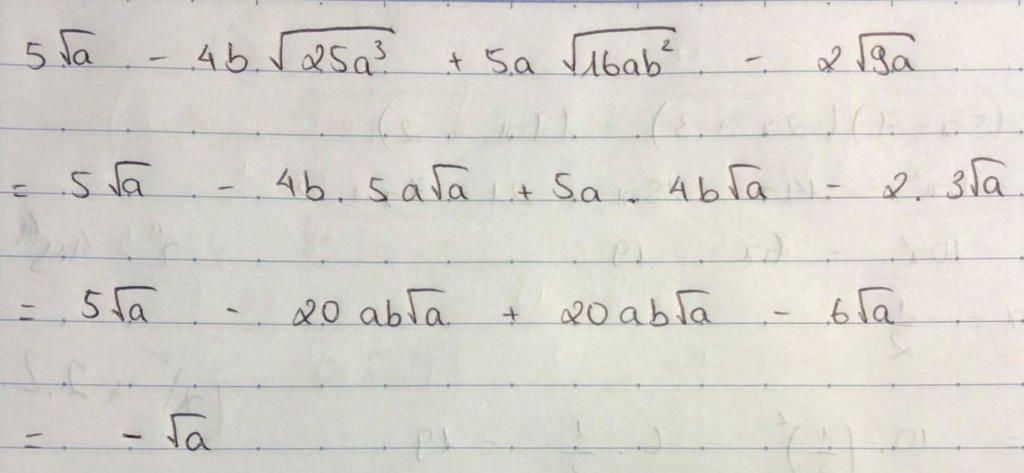 5√a - 4b √(25a³) + 5a √(16ab²) - 2√(9a)
= 5√a - 4b . 5a√a + 5a . 4b√a - 2 . 3√a
= 5√a - 20ab√a + 20ab√a - 6√a
= - √a